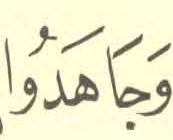 وَجَاهَدُوا